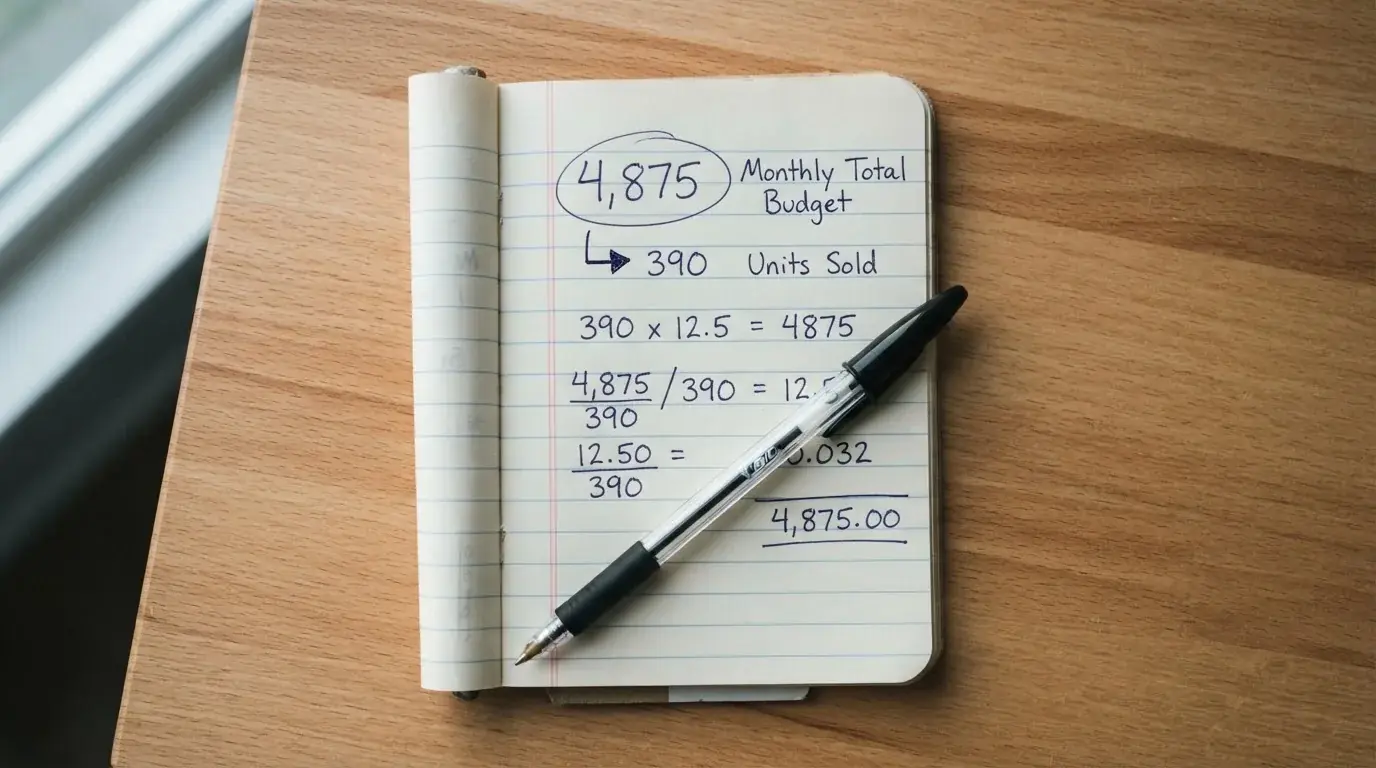 4,875 Monthly Total
Budget
390 Units Sold
390 x 12.5 = 4875
4,875 / 390 = 12.5
390
12.50 = .032
390
4,875.00